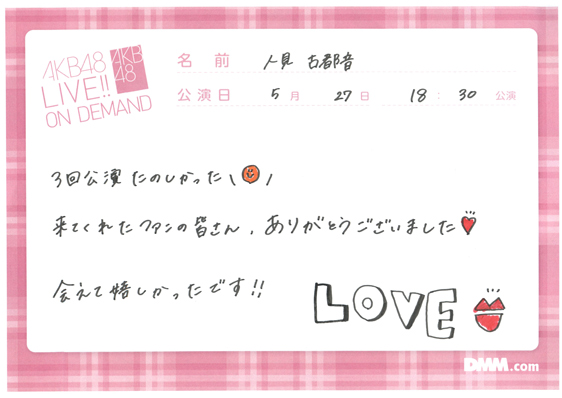 AKB48
LIVE!!
ON DEMAND
AKB
48
名 前 人見 古都音
公演日 5月 27日 18:30 公演
3回公演 たのしかった\ /
来てくれたファンの皆さん、ありがとうございました
会えて嬉しかったです!!
LOVE
DMM.com